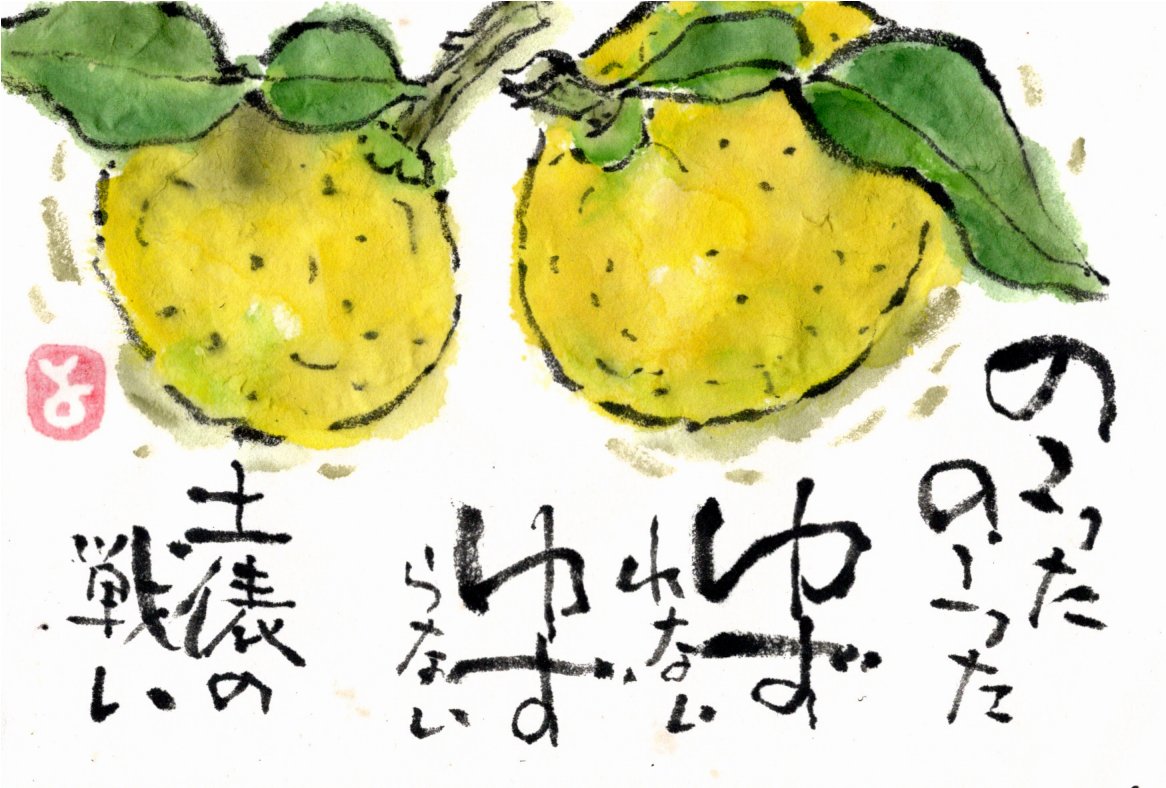 のこった
のこった
ゆずれない
ゆずらない
土俵の
戦い